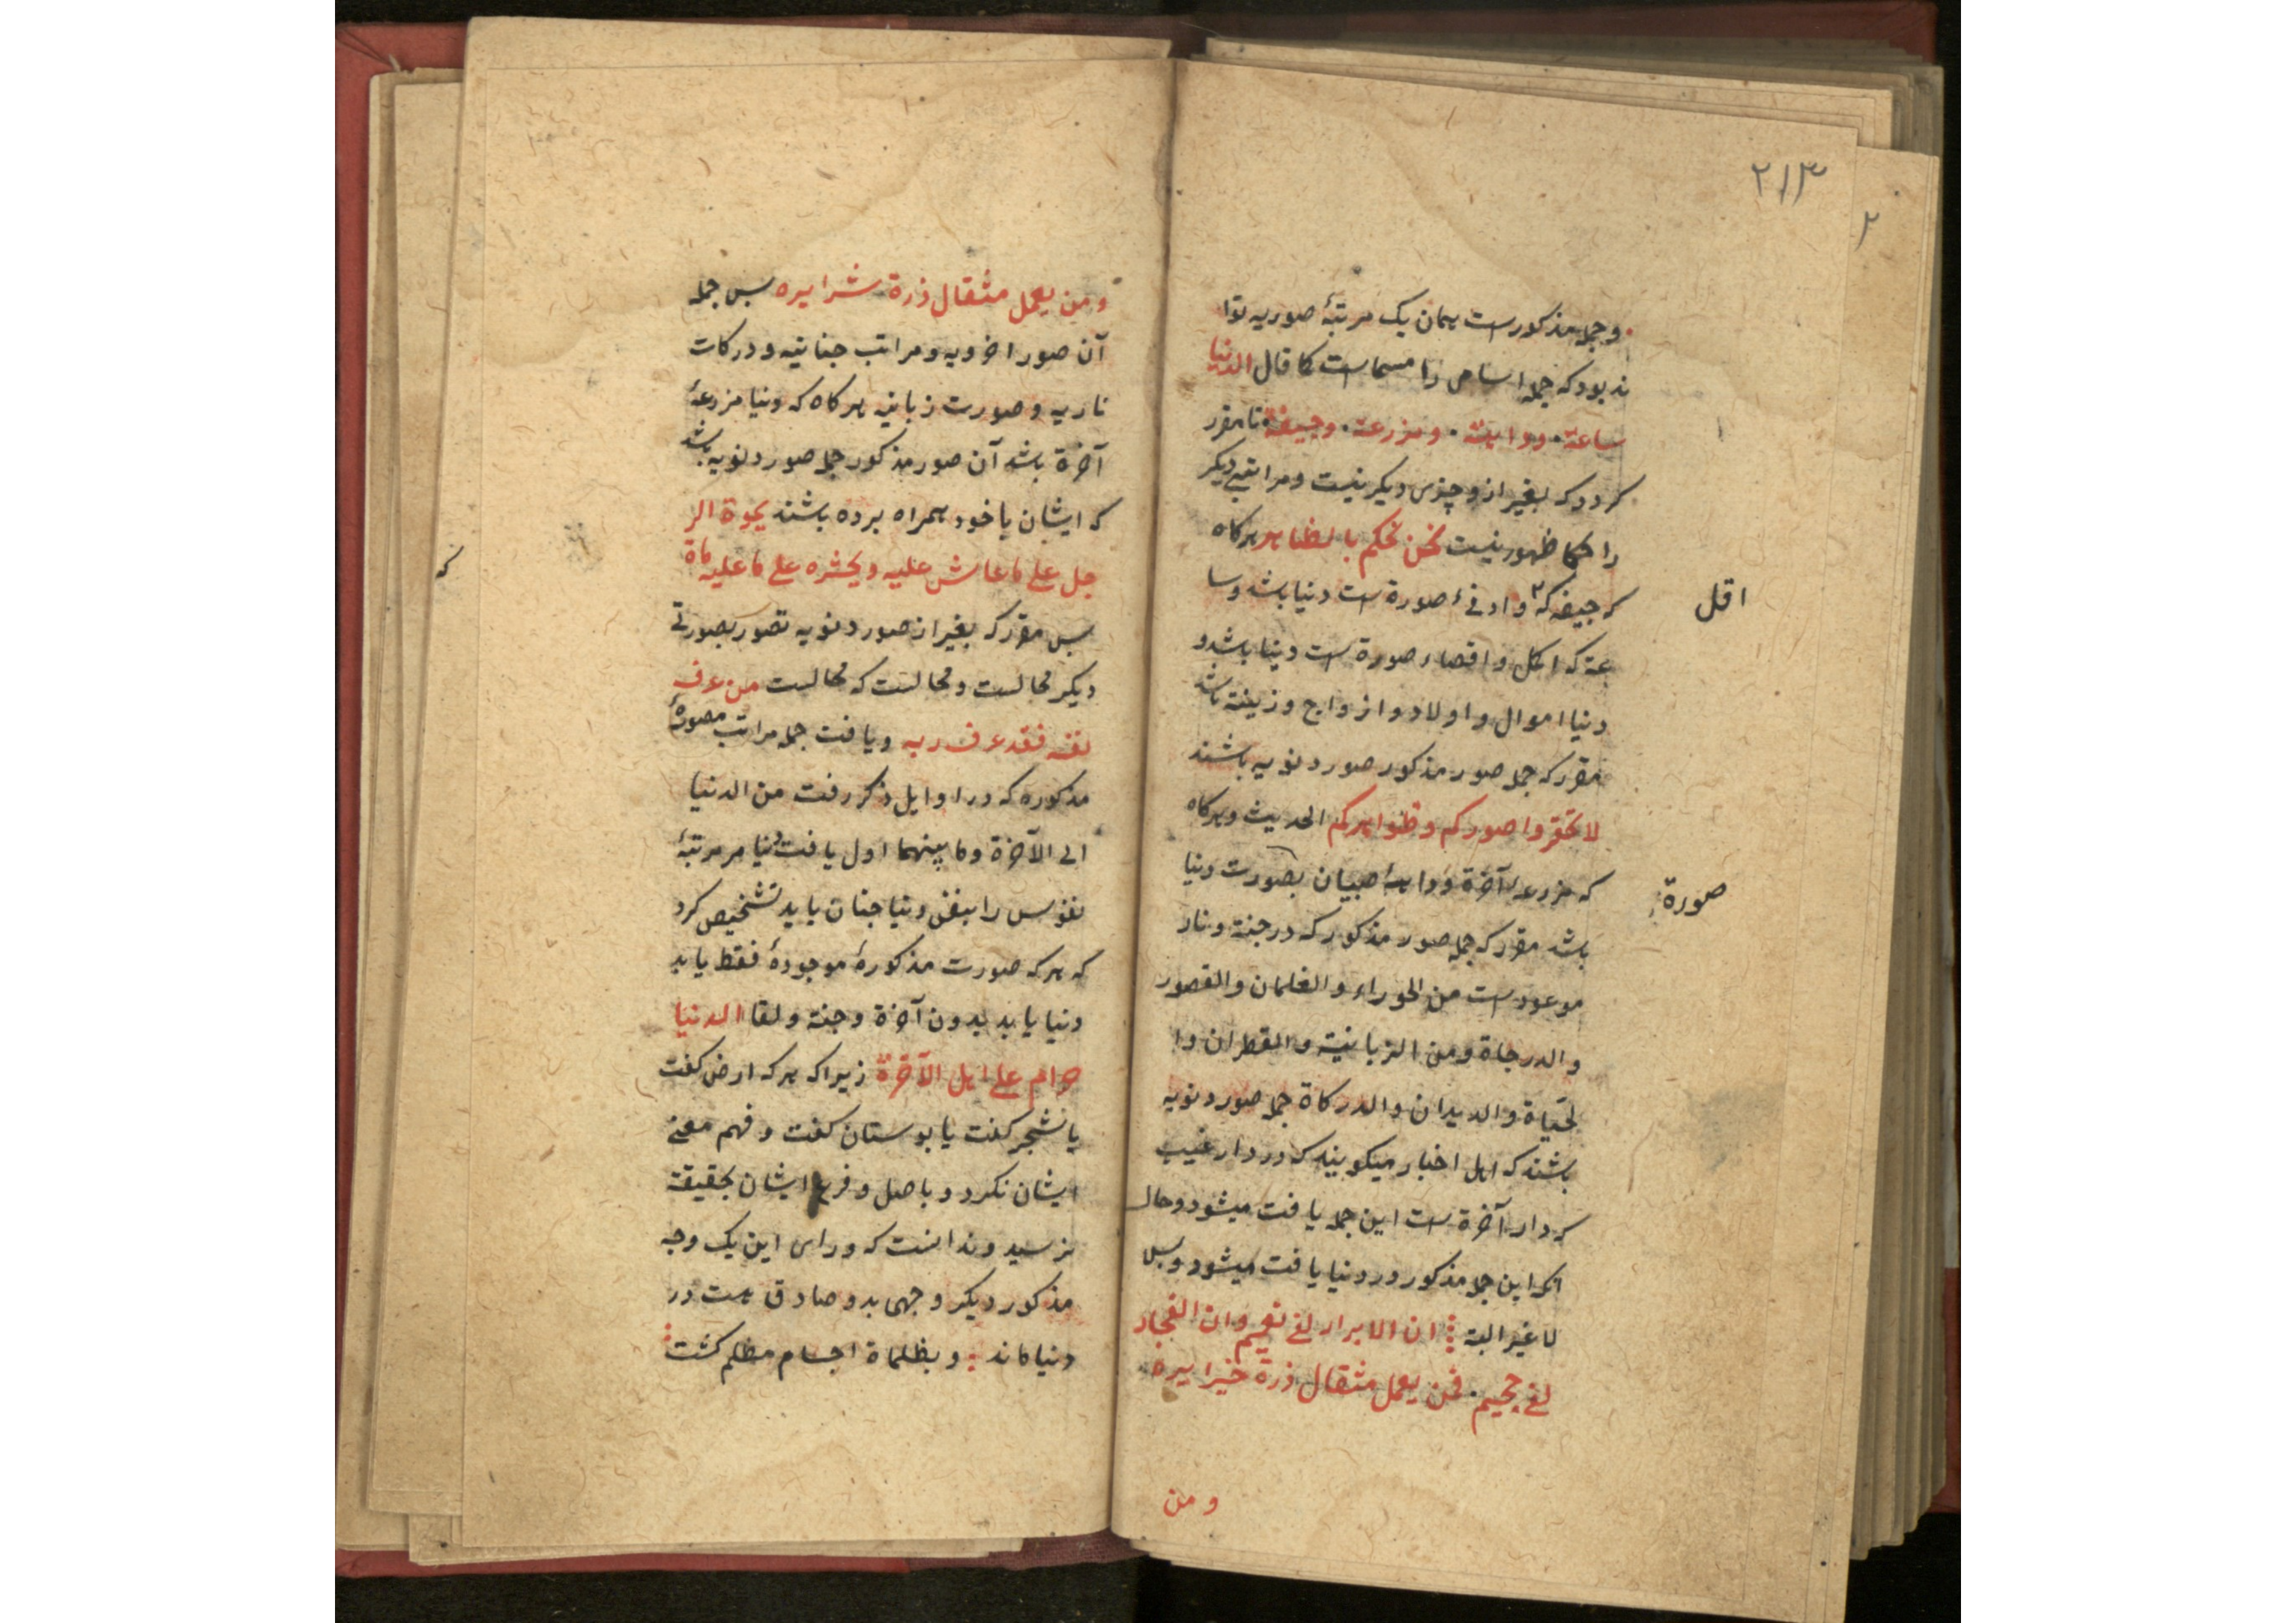 ۲۱۳
۲
وجمله مذکور است همان یک مرتبهٔ صوریه توا
ند بود که جمله اسامی را مسما است کما قال الدنیا
ساعة ودایة ومزرعة وجیفة تا مقرر
کردد که بغیر از و چیزی دیکر نیست ومراتبی دیکر
را حکما ظهور نیست نحن نحکم بالظاهر هرکاه
که جیفه که وادنیٰ صورة است دنیا باشد وسا
اقل
عة که اکمل واقصاء صورة است دنیا باشد و
دنیا اموال و اولاد و ازواج و زینة باشد
مقرر که جمله صور مذکور صور دنویه باشند
لا تحقروا صورکم وظواهرکم الحدیث وهرکاه
که مزرعهٔ آخرة ودایهٔ صبیان بصورت دنیا
صورة
باشد مقرر که جمله صور مذکور که در جنة ونار
موعود است من الحوراء والغلمان والقصور
والدرجاة ومن الزبانیة والقطران وا
لحیاة والدیدان والدرکاة جمله صور دنویه
باشند که اهل اخبار میکویند که در دار غیب
که دار آخرة است این جمله یافت میشود وحال
انکه این جمله مذکور در دنیا یافت میشود وبس
لا غیر البتة ان الابرار لفی نعیم وان الفجار
لفی جحیم فمن یعمل مثقال ذرة خیرا یره
و من
ومن یعمل مثقال ذرة شرا یره بس جمله
آن صور اخرویه ومراتب جنانیه ودرکات
ناریه وصورت زبانیه هرکاه که دنیا مزرعهٔ
آخرة باشد آن صور مذکور جمله صور دنویه باشد
که ایشان با خود همراه برده باشند یموة الر
جل علی ما عاش علیه ویحشره علی ما علیه ماة
بس مقرر که بغیر از صور دنویه تصور بصورتی
دیکر محالست ومحالست که محالست من عرف
نفسه فقد عرف ربه ویافت جمله مراتب مصورهٔ
مذکوره که در اوایل ذکر رفت من الدنیا
الی الآخرة وما بینهما اول یافت دنیا مر مرتبهٔ
نفوس را بنفس دنیا جنان باید تشخیص کرد
که هرکه صورت مذکورهٔ موجودهٔ فقط یابد
دنیا یابد بدون آخرة وجنة ولقا الدنیا
حرام علی اهل الآخرة زیراکه هرکه ارض کفت
یا شجر کفت یا بوستان کفت وفهم معنی
ایشان نکرد وباصل وفرع ایشان بحقیقة
نرسید وندانست که ورای این یک وجه
مذکور دیکر وجهی بدو صادق هست در
دنیا ماند وبظلماة اجسام مظلم کشت